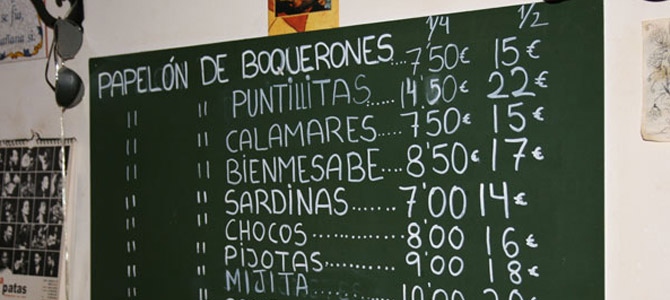 1/4 1/2
PAPELÓN DE BOQUERONES... 7'50€ 15€
" " PUNTILLITAS..... 14'50€ 22€
" " CALAMARES.... 7'50€ 15€
" " BIENMESABE... 8'50€ 17€
" " SARDINAS....... 7'00 14€
" " CHOCOS............ 8'00 16€
" " PIJOTAS........... 9'00 18€
" " MIJITA
patas